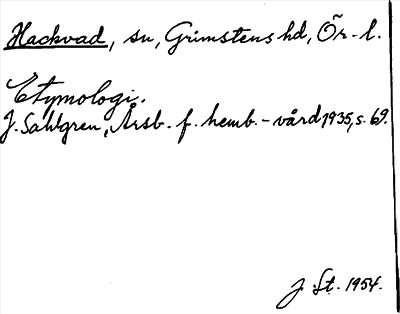 Hackvad, sn, Grimstens hd, Ör. l.
Etymologi.
J. Sahlgren, Årsb. f. hemb.-vård 1935, s. 69.
J. St. 1954.